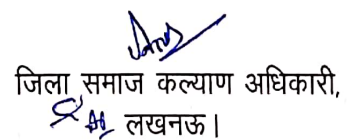 जिला समाज कल्याण अधिकारी,
लखनऊ।